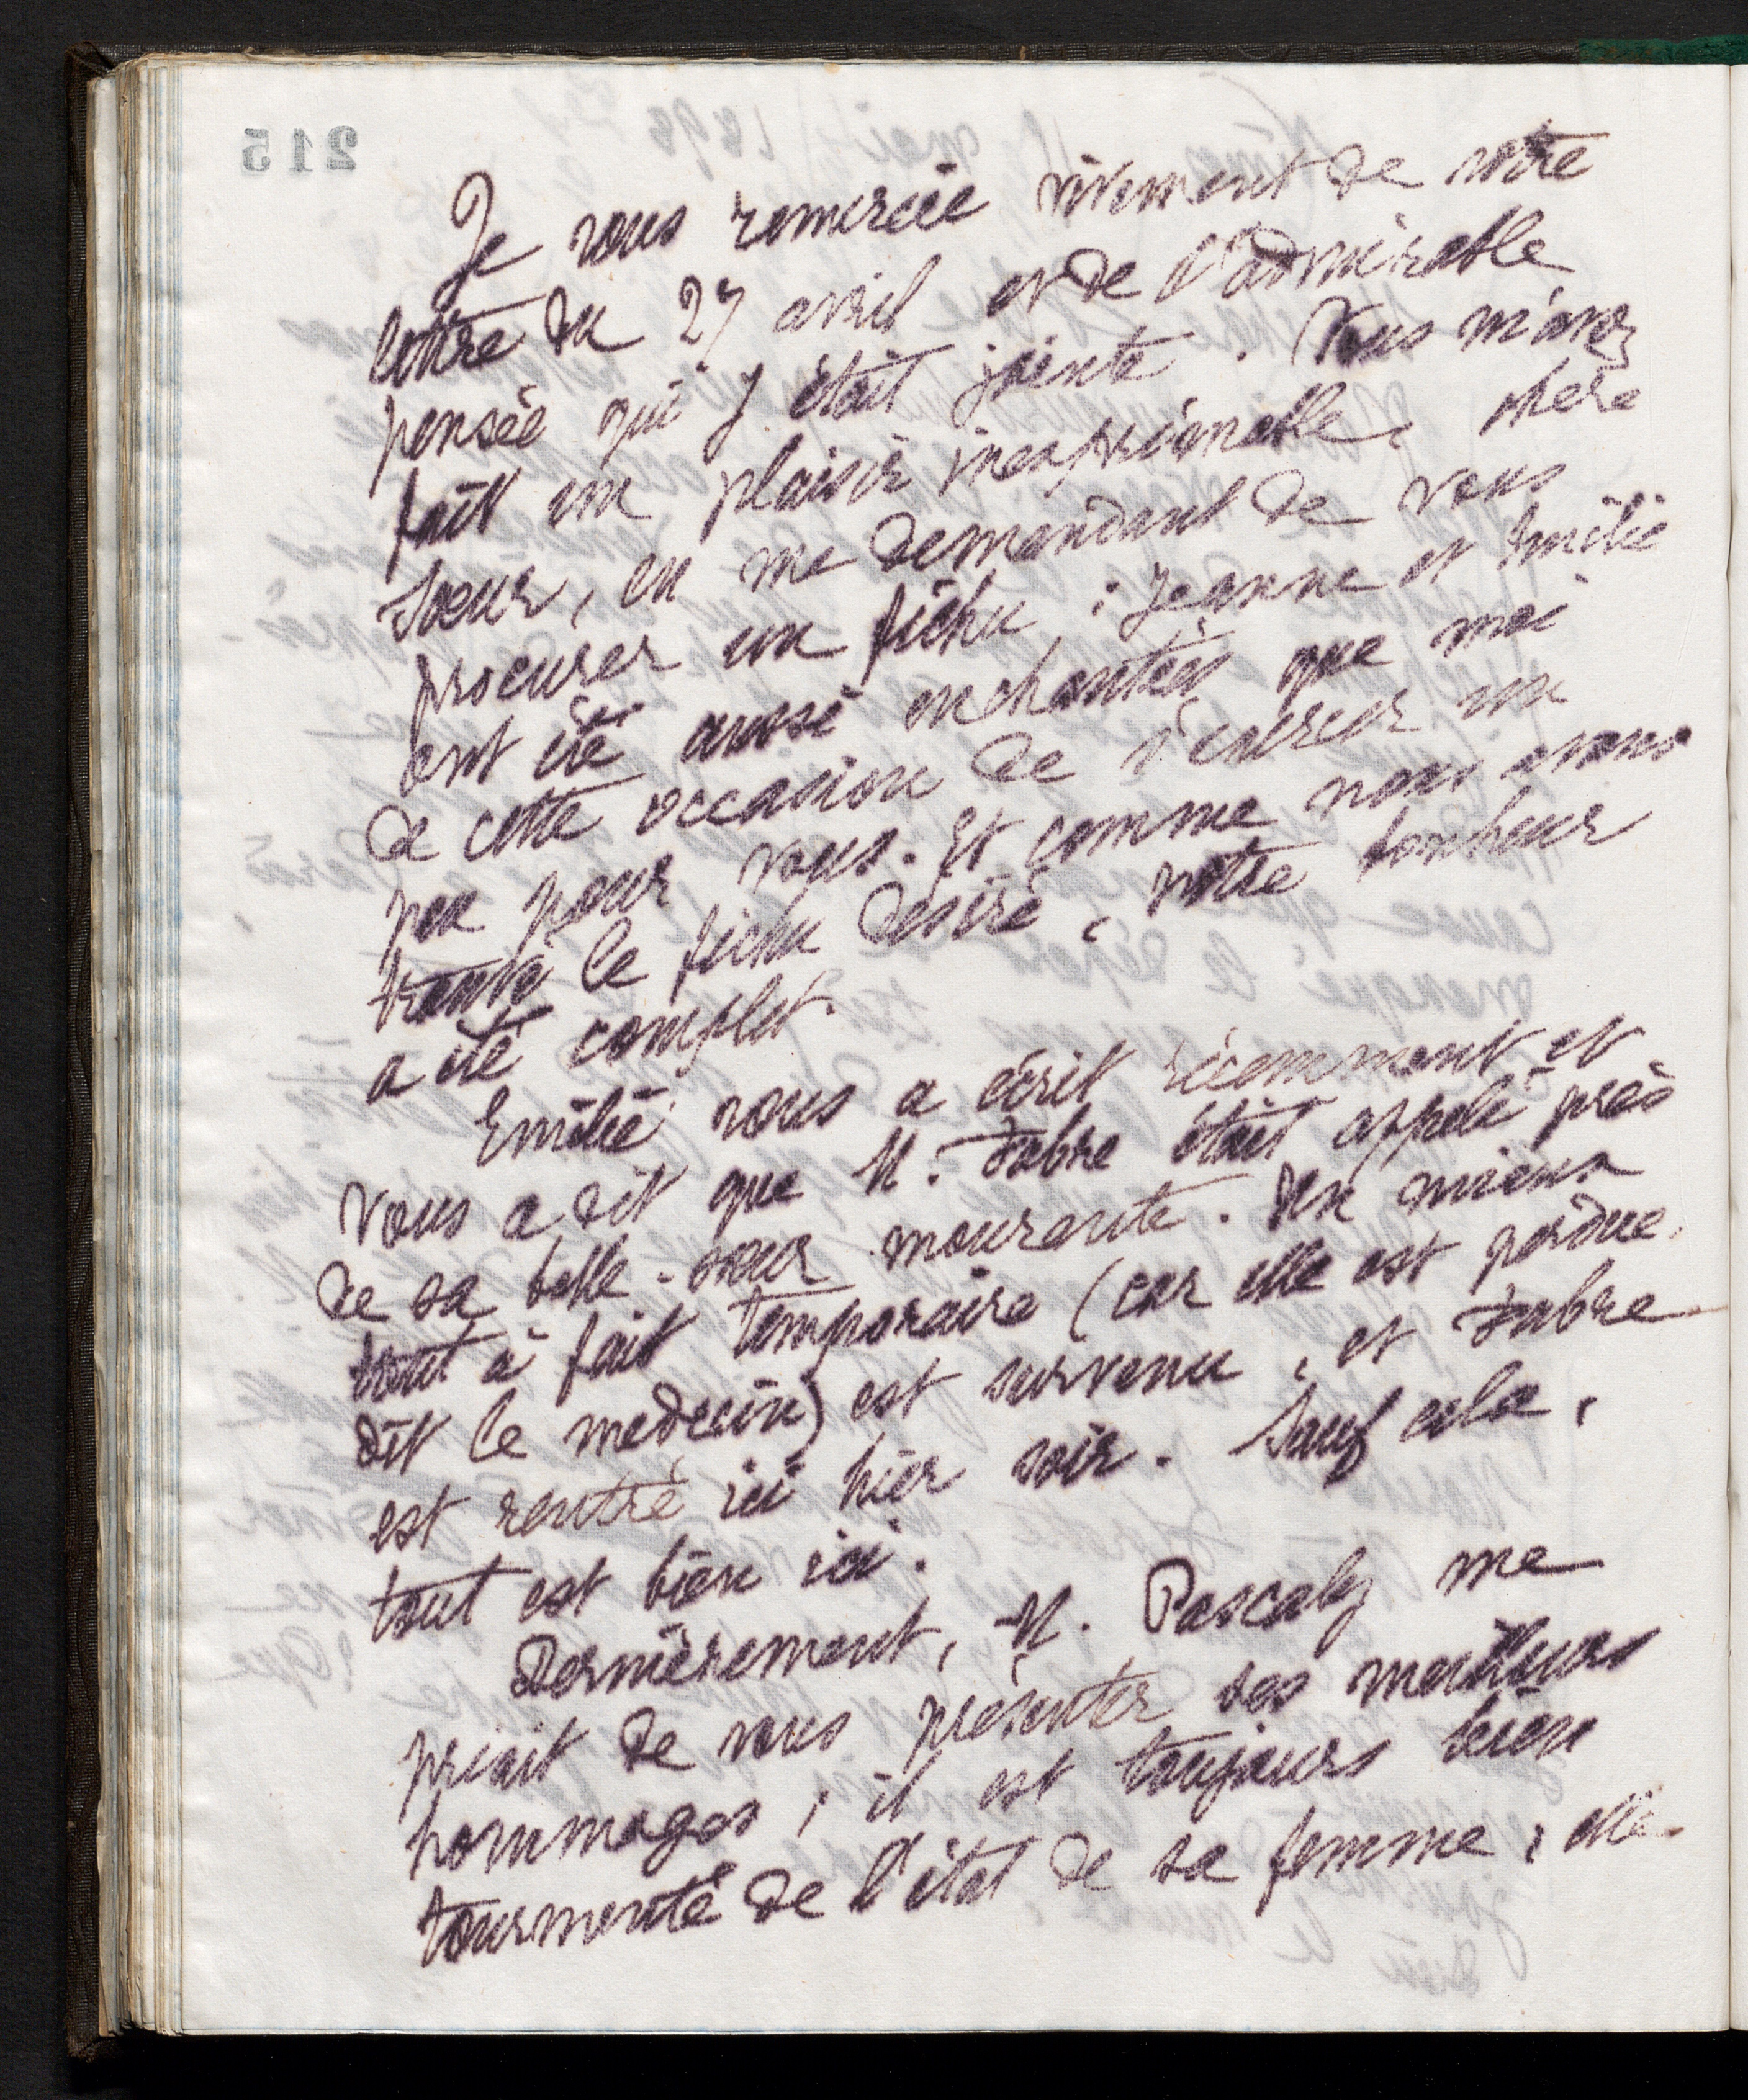 215
Je vous remercie vivement de votre
lettre du 27 avril et de l'admirable
pensée qui y était jointe. Vous m'avez
fait un plaisir inexprimable, chère
sœur, en me demandant de vous
procurer un fichu ; Jeanne et Emilie
ont été aussi enchantées que moi
de cette occasion de s'exercer un
peu pour vous. Et comme nous avons
trouvé le fichu désiré, notre bonheur
a été complet.
Emilie vous a écrit récemment et
vous a dit que M. Fabre était appelé près
de sa belle-sœur mourante. Un mieux
tout à fait temporaire (car elle est perdue,
dit le médecin) est survenu, et Fabre
est rentré ici hier soir. Sauf cela,
tout est bien ici.
Dernièrement, M. Pascaly me
priait de vous présenter ses meilleurs
hommages ; il est toujours bien
tourmenté de l'état de sa femme ; elle